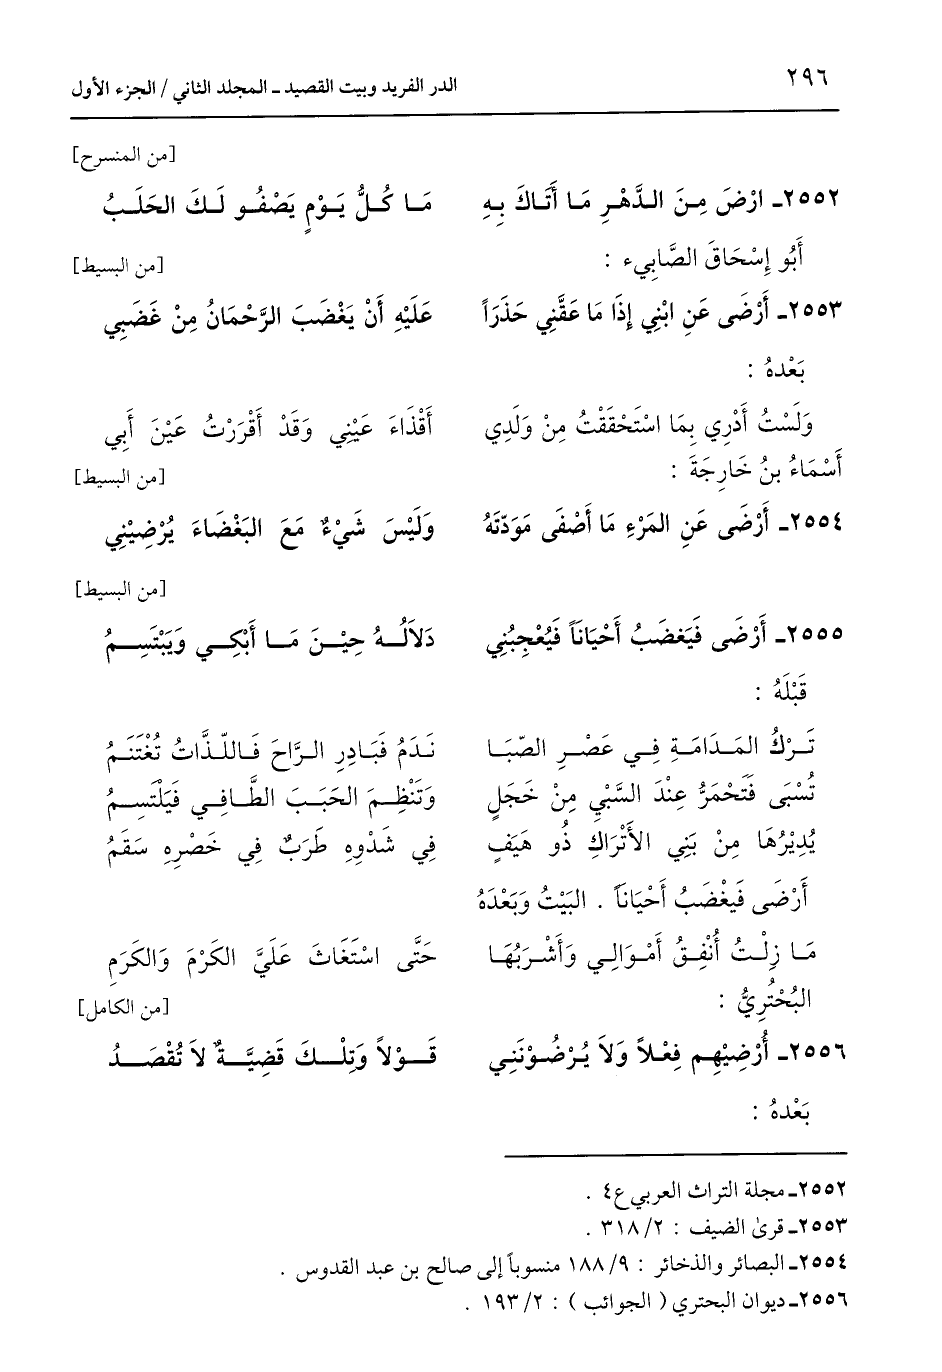 ٢٩٦
الدر الفريد وبيت القصيد ـ المجلد الثاني / الجزء الأول
[من المنسرح]
٢٥٥٢ـ ارْضَ مِنَ الدَّهْرِ مَا أَتَاكَ بِهِ مَا كُلُّ يَوْمٍ يَصْفُو لَكَ الحَلَبُ
أَبُو إِسْحَاقَ الصَّابِيء : [من البسيط]
٢٥٥٣ـ أَرْضَى عَنِ ابْنِي إِذَا مَا عَقَّنِي حَذَرَاً عَلَيْهِ أَنْ يَغْضَبَ الرَّحْمَانُ مِنْ غَضَبِي
بَعْدهُ :
وَلَسْتُ أَدْرِي بِمَا اسْتَحْقَقْتُ مِنْ وَلَدِي أَقْذَاءَ عَيْنِي وَقَدْ أَقْرَرْتُ عَيْنَ أَبِي
أَسْمَاءُ بنُ خَارِجَةَ : [من البسيط]
٢٥٥٤ـ أَرْضَى عَنِ المَرْءِ مَا أَصْفَى مَوَدّتَهُ وَلَيْسَ شَيْءٌ مَعَ البَغْضَاءَ يُرْضِيْنِي
[من البسيط]
٢٥٥٥ـ أَرْضَى فَيَغضَبُ أَحْيَانَاً فَيُعْجِبُنِي دَلاَلُهُ حِيْنَ مَا أَبْكِي وَيَبْتَسِمُ
قَبْلَهُ :
تَرْكُ المَدَامَةِ فِي عَصْرِ الصّبَا نَدَمُ فَبَادِرِ الرَّاحَ فَاللّذَّاتُ تُغْتَنَمُ
تُسْبَى فَتَحْمَرُّ عِنْدَ السَّبْيِ مِنْ خَجَلٍ وَتَنْظِمَ الحَبَبَ الطَّافِي فَيَلْتَسِمُ
يُدِيْرُهَا مِنْ بَنِي الأَتْرَاكِ ذُو هَيَفٍ فِي شَدْوِهِ طَرَبٌ فِي خَصْرِهِ سَقَمُ
أَرْضَى فَيغْضَبُ أَحْيَانَاً . البَيْتُ وَبَعْدَهُ
مَا زِلْتُ أُنْفِقُ أَمْوَالِي وَأَشْرَبُهَا حَتَّى اسْتَغَاثَ عَلَيَّ الكَرْمَ وَالكَرَمِ
البُحْتُرِيُّ : [من الكامل]
٢٥٥٦ـ أُرْضِيْهِم فِعْلاً وَلاَ يُرْضُوْنَنِي قَوْلاً وَتِلْكَ قَضِيَّةٌ لاَ تُقْصَدُ
بَعْدهُ :
٢٥٥٢ـ مجلة التراث العربي ع٤ .
٢٥٥٣ـ قرىٰ الضيف : ٢/ ٣١٨ .
٢٥٥٤ـ البصائر والذخائر : ٩/ ١٨٨ منسوباً إلى صالح بن عبد القدوس .
٢٥٥٦ـ ديوان البحتري ( الجوائب ) : ٢/ ١٩٣ .